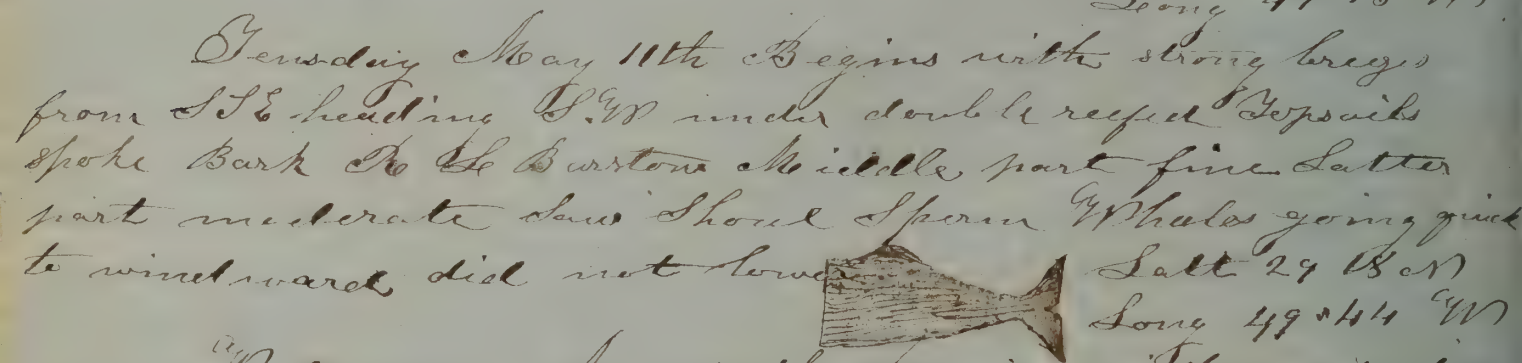 Long 49
Tensday May 11th Begins with strong brezs
from SSE heading S.W under double reefed Topsails
spoke Bark R Burston Middle part fine Latter
part moderate Saw Shoul Sperm Whales going quick
to windward did not lower
Latt 29 18 N
Long 49 44 W